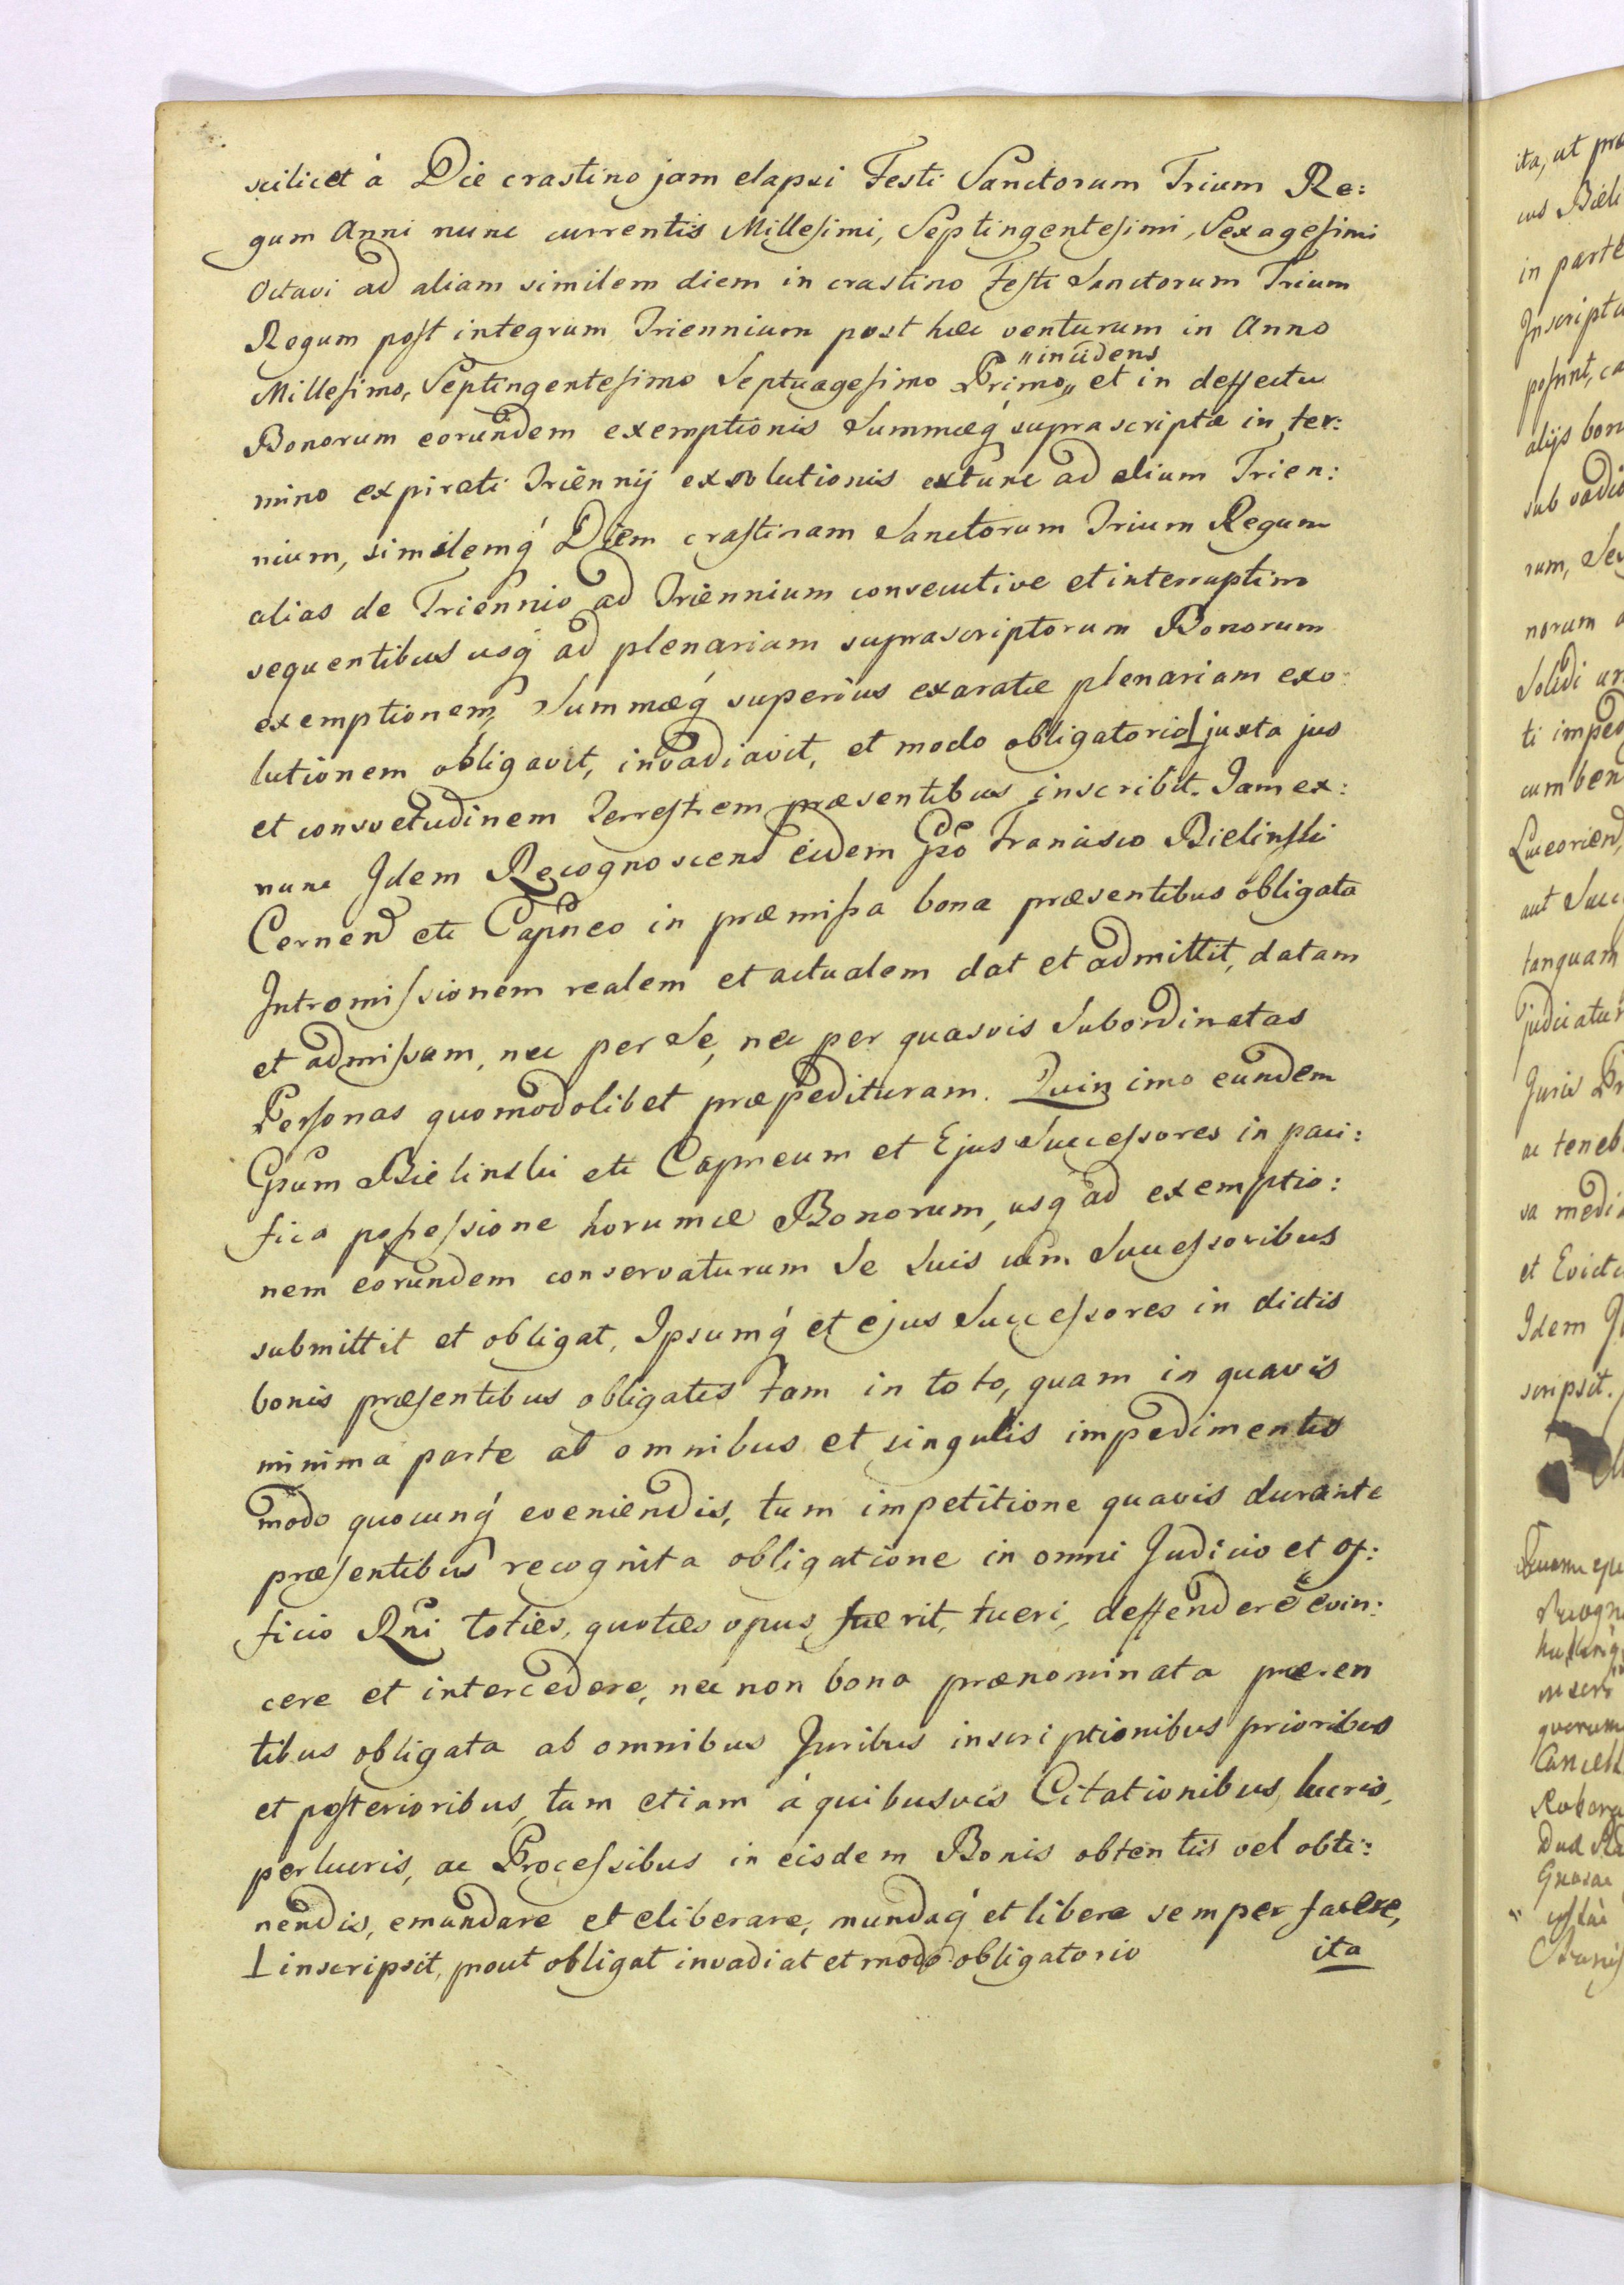 scilicet à Die crastino jam elapsi Festi Sanctorum Trium Re:
gum Anni nunc currentis Millesimi, Septingentesimi, Sexagesimi
Octavi ad aliam similem diem in crastino Festi Sanctorum Trium
Regum post integrum Triennium post hac venturum in Anno
"incidens
Millesimo, Septingentesimo Septuagesimo Primo„ et in deffectu
Bonorum eorundem exemptionis Summæq́ suprascriptæ in ter:
mino expirati Triennij exsolutionis extunc ad alium Trien:
nium, similemq́ Diem crastinam Sanctorum Trium Regum
alias de Triennio ad Triennium consecutive et interruptim
sequentibus usq́ ad plenariam suprascriptorum Bonorum
exemptionem, Summæq́ superius exaratæ plenariam exo:
lutionem obligavit, invadiavit, et modo obligatorio⊥ juxta jus
et consvetudinem Terrestrem præsentibus inscribit. Jam ex:
nunc Idem Recognoscens eidem Gso Francisco Bielinski
Cernen etc Capneo in præmissa bona præsentibus obligata
Intromissionem realem et actualem dat et admittit, datam
et admissam, nec per Se, nec per quasvis Subordinatas
Personas quomodolibet præpedituram. Quin imo eundem
Gsum Bielinski etc Capneum et Ejus Successores in paci:
fica possessione horumce Bonorum, usq́ ad exemptio:
nem eorundem conservaturum Se Suis cum Successoribus
submittit et obligat, Ipsumq́ et ejus Successores in dictis
bonis præsentibus obligatis tam in toto, quam in quavis
minima parte ab omnibus et singulis impedimentis
modo quocunq́ eveniendis, tum impetitione quavis durante
præsentibus recognita obligatione in omni Judicio et Of:
ficio Rni toties, quoties opus fuerit, tueri, deffendere evin:
cere et intercedere, nec non bona prænominata præsen
tibus obligata ab omnibus Juribus inscriptionibus prioribus
et posterioribus, tam etiam à quibusvis Citationibus, lucris,
perlucris, ac Processibus in eisdem Bonis obtentis vel obti:
nendis, emundare et eliberare, mundaq́ et libera semper facere,
⊥ inscripsit, prout obligat invadiat et modo obligatorio
ita